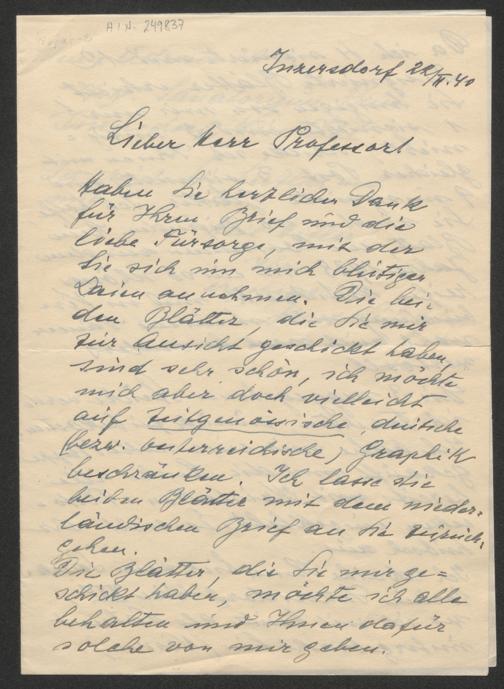 A.I.N. 249837
Inzersdorf 22/IV. 40
Lieber Herr Professor!
Haben Sie herzlichen Dank
für Ihren Brief und die
liebe Fürsorge, mit der
Sie sich um mich blutigen
Laien annehmen. Die bei-
den Blätter, die Sie mir
zur Ansicht geschickt haben,
sind sehr schön, ich möchte
mich aber doch vielleicht
auf zeitgenössische, deutsche
(bezw. österreichische) Graphik
beschränken. Ich lasse die
beiden Blätter mit dem nieder-
ländischen Brief an Sie zurück-
gehen.
Die Blätter, die Sie mir ge=
schickt haben, möchte ich alle
behalten und Ihnen dafür
solche von mir geben.